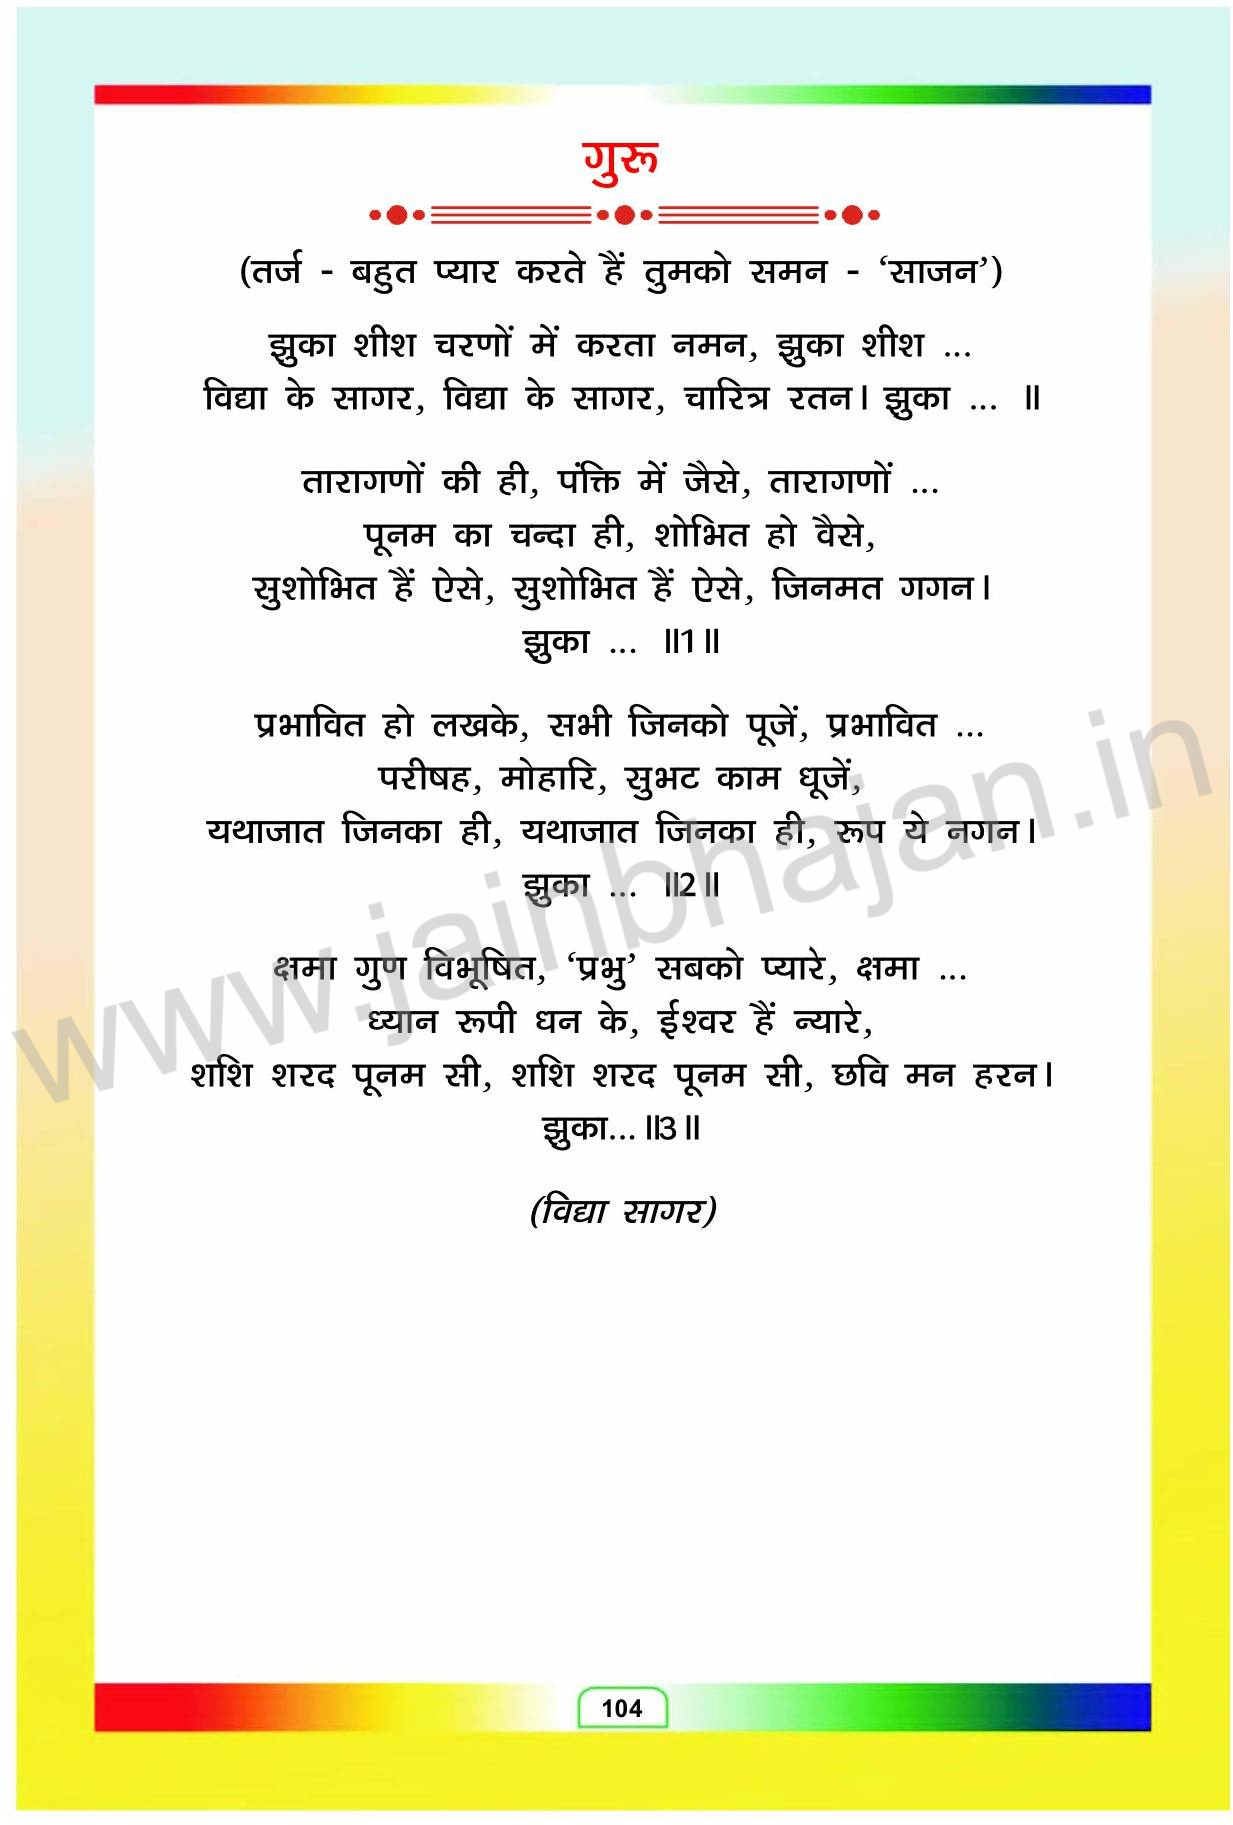 गुरू
(तर्ज - बहुत प्यार करते हैं तुमको समन - ‘साजन’)
झुका शीश चरणों में करता नमन, झुका शीश ...
विद्या के सागर, विद्या के सागर, चारित्र रतन। झुका ... ॥
तारागणों की ही, पंक्ति में जैसे, तारागणों ...
पूनम का चन्दा ही, शोभित हो वैसे,
सुशोभित हैं ऐसे, सुशोभित हैं ऐसे, जिनमत गगन।
झुका ... ॥1॥
प्रभावित हो लखके, सभी जिनको पूजें, प्रभावित ...
परीषह, मोहारि, सुभट काम धूजें,
यथाजात जिनका ही, यथाजात जिनका ही, रूप ये नगन।
झुका ... ॥2॥
क्षमा गुण विभूषित, ‘प्रभु’ सबको प्यारे, क्षमा ...
ध्यान रूपी धन के, ईश्वर हैं न्यारे,
शशि शरद पूनम सी, शशि शरद पूनम सी, छवि मन हरन।
झुका... ॥3॥
(विद्या सागर)
www.jainbhajan.in
104